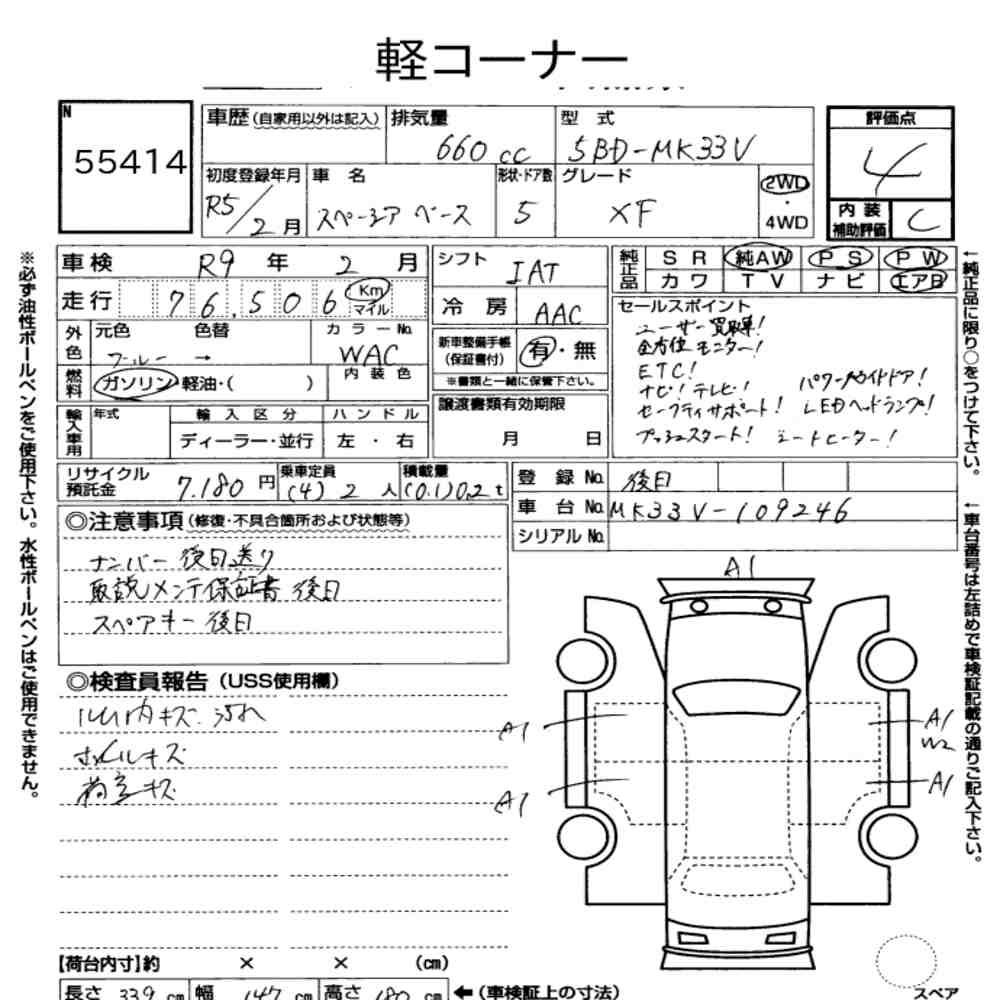 軽コーナー
N
55414
車歴 (自家用以外は記入)
排気量
660 cc
型式
5BD-MK33V
評価点
4
内装補助評価
C
初度登録年月
R5/2月
車名
スペーシア ベース
形状・ドア数
5
グレード
XF
2WD
・
4WD
車検 R9 年 2 月
走行 76,506 Km マイル
シフト
IAT
冷房
AAC
純正品
SR 純AW PS PW
カワ TV ナビ エアB
外色
元色 色替
ブルー →
カラーNo.
WAC
燃料
ガソリン・軽油・( )
内装色
新車整備手帳(保証書付)
有・無
※書類と一緒に保管下さい。
セールスポイント
ユーザー買取車!
全方位モニター!
ETC!
ナビ!テレビ! パワースライドドア!
セーフティサポート! LEDヘッドランプ!
プッシュスタート! シートヒーター!
輸入車用
年式
輸入区分
ディーラー・並行
ハンドル
左・右
譲渡書類有効期限
月 日
リサイクル預託金 7.180 円
乗車定員 (4) 2 人
積載量 (0.1)0.2 t
登録No. 後日
車台No. MK33V-109246
シリアルNo.
◎注意事項 (修復・不具合箇所および状態等)
ナンバー 後日送り
取説メンテ保証書 後日
スペアキー 後日
◎検査員報告 (USS使用欄)
ルム内キズ.汚れ
ホイルキズ
荷室キズ
A1
A1
A1
A1
W2
A1
【荷台内寸】約 × × (cm)
長さ 339 cm 幅 147 cm 高さ 180 cm ←(車検証上の寸法)
スペア
※必ず油性ボールペンをご使用下さい。水性ボールペンはご使用できません。
←純正品に限り○をつけて下さい。
←車台番号は左詰めで車検証記載の通りご記入下さい。